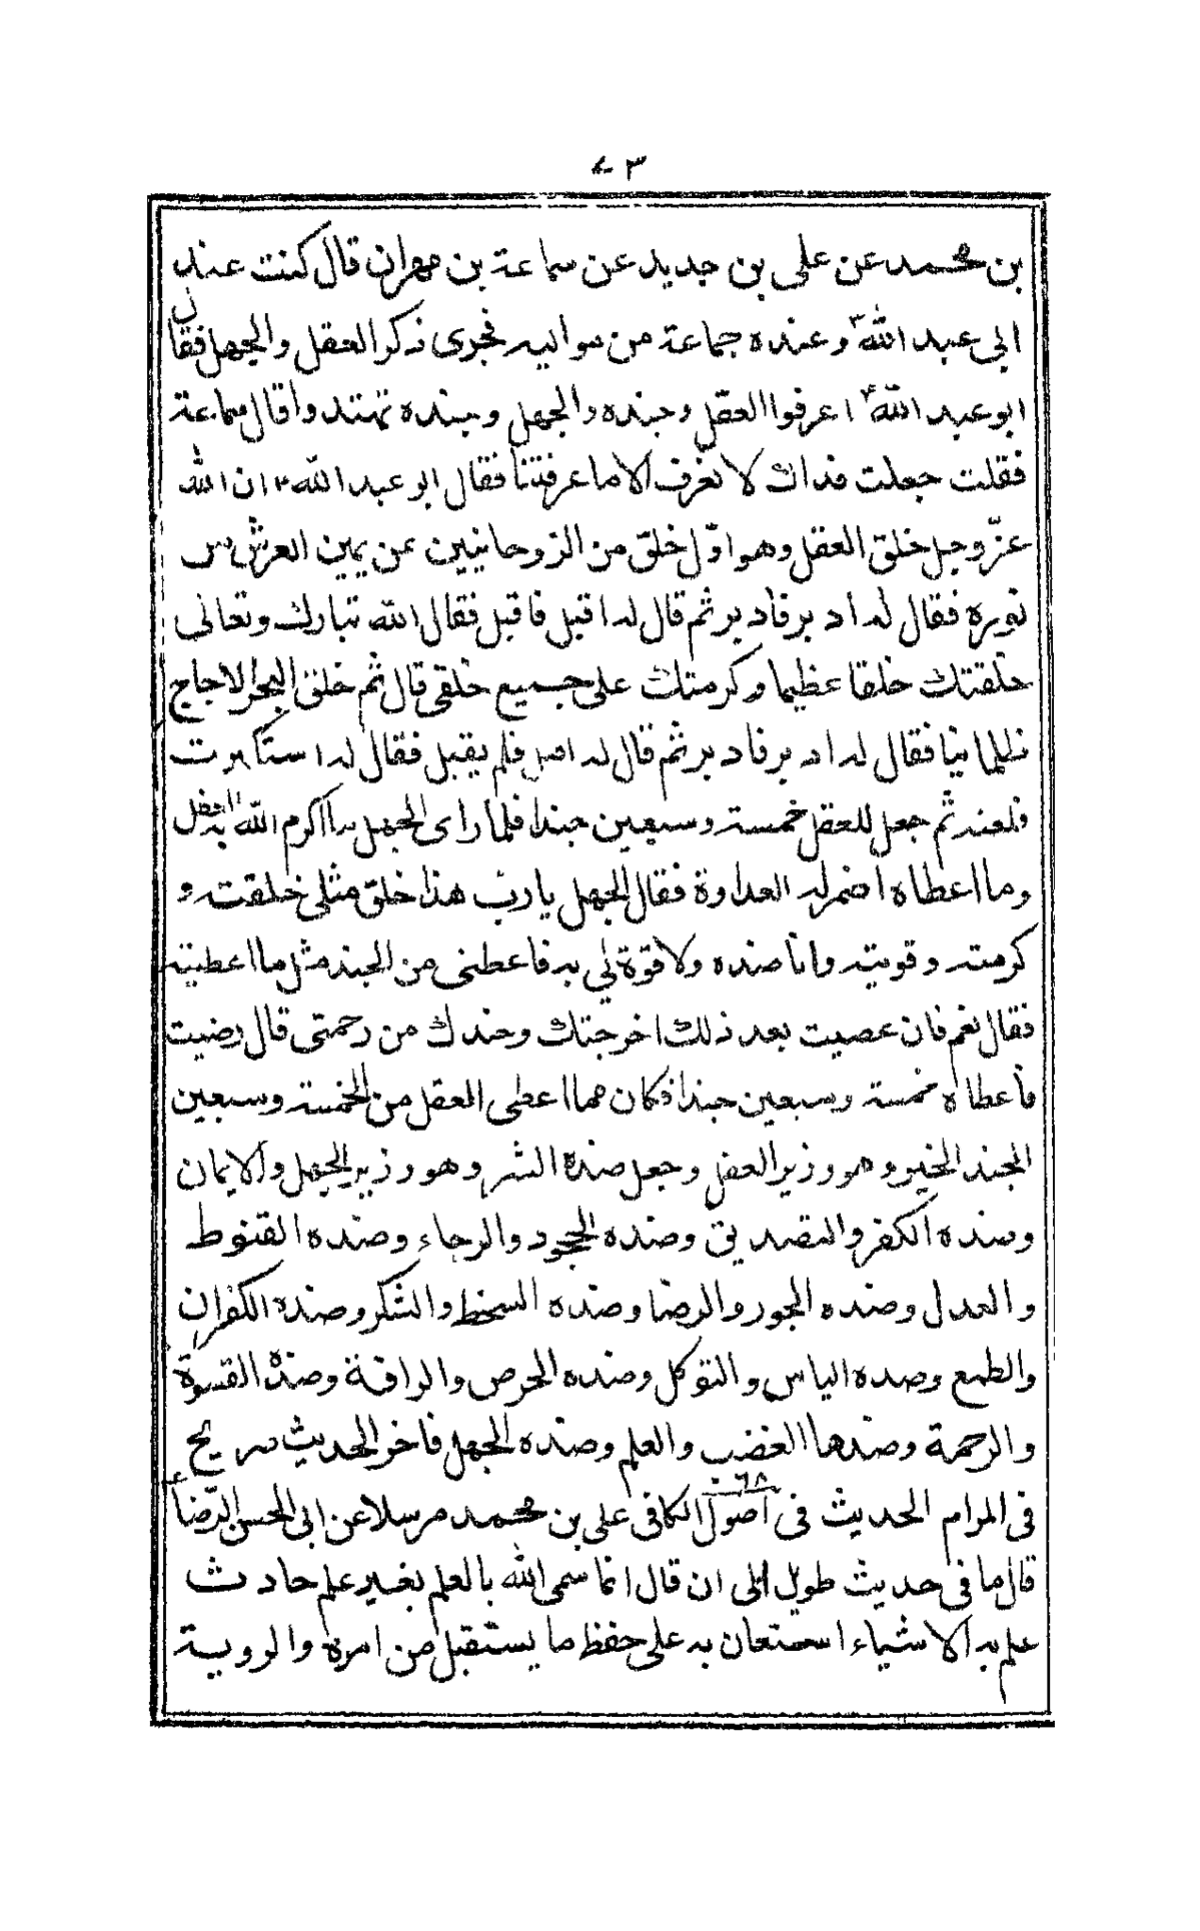 ٤٣
بن محمد عن علي بن حديد عن سماعة بن مهران قال كنت عند
ابي عبد الله ع وعنده جماعة من مواليه فجرى ذكر العقل والجهل فقال
ابو عبد الله ع اعرفوا العقل وجنده والجهل وجنده تهتدوا قال سماعة
فقلت جعلت فداك لا نعرف الا ما عرفتنا فقال ابو عبد الله ع ان الله
عزّ وجل خلق العقل وهو اوّل خلق من الروحانيين عن يمين العرش من
نوره فقال له ادبر فادبر ثم قال له اقبل فاقبل فقال الله تبارك وتعالى
خلقتك خلقا عظيما وكرمتك على جميع خلقي قال ثم خلق الجهل من البحر الاجاج
ظلمانيا فقال له ادبر فادبر ثم قال له اقبل فلم يقبل فقال له استكبرت
فلعنه ثم جعل للعقل خمسة وسبعين جندا فلما راى الجهل ما اكرم الله به العقل
وما اعطاه اضمر له العداوة فقال الجهل يا رب هذا خلق مثلي خلقته و
كرمته وقويته وانا ضده ولا قوة لي به فاعطني من الجند مثل ما اعطيته
فقال نعم فان عصيت بعد ذلك اخرجتك وجندك من رحمتي قال رضيت
فاعطاه خمسة وسبعين جندا فكان مما اعطى العقل من الخمسة وسبعين
الجند الخير وهو وزير العقل وجعل ضده الشر وهو وزير الجهل والايمان
وضده الكفر والتصديق وضده الجحود والرجاء وضده القنوط
والعدل وضده الجور والرضا وضده السخط والشكر وضده الكفران
والطمع وضده الياس والتوكل وضده الحرص والرافة وضدة القسوة
والرحمة وضدها الغضب والعلم وضده الجهل فاخر الحديث صريح
في المرام الحديث ٦٨ في اصول الكافي علي بن محمد مرسلا عن ابي الحسن الرّضا ع
قال ما في حديث طويل الى ان قال انما سمي الله بالعلم بغير علم حادث
علم به الاشياء استعان به على حفظ ما يستقبل من امره والروية